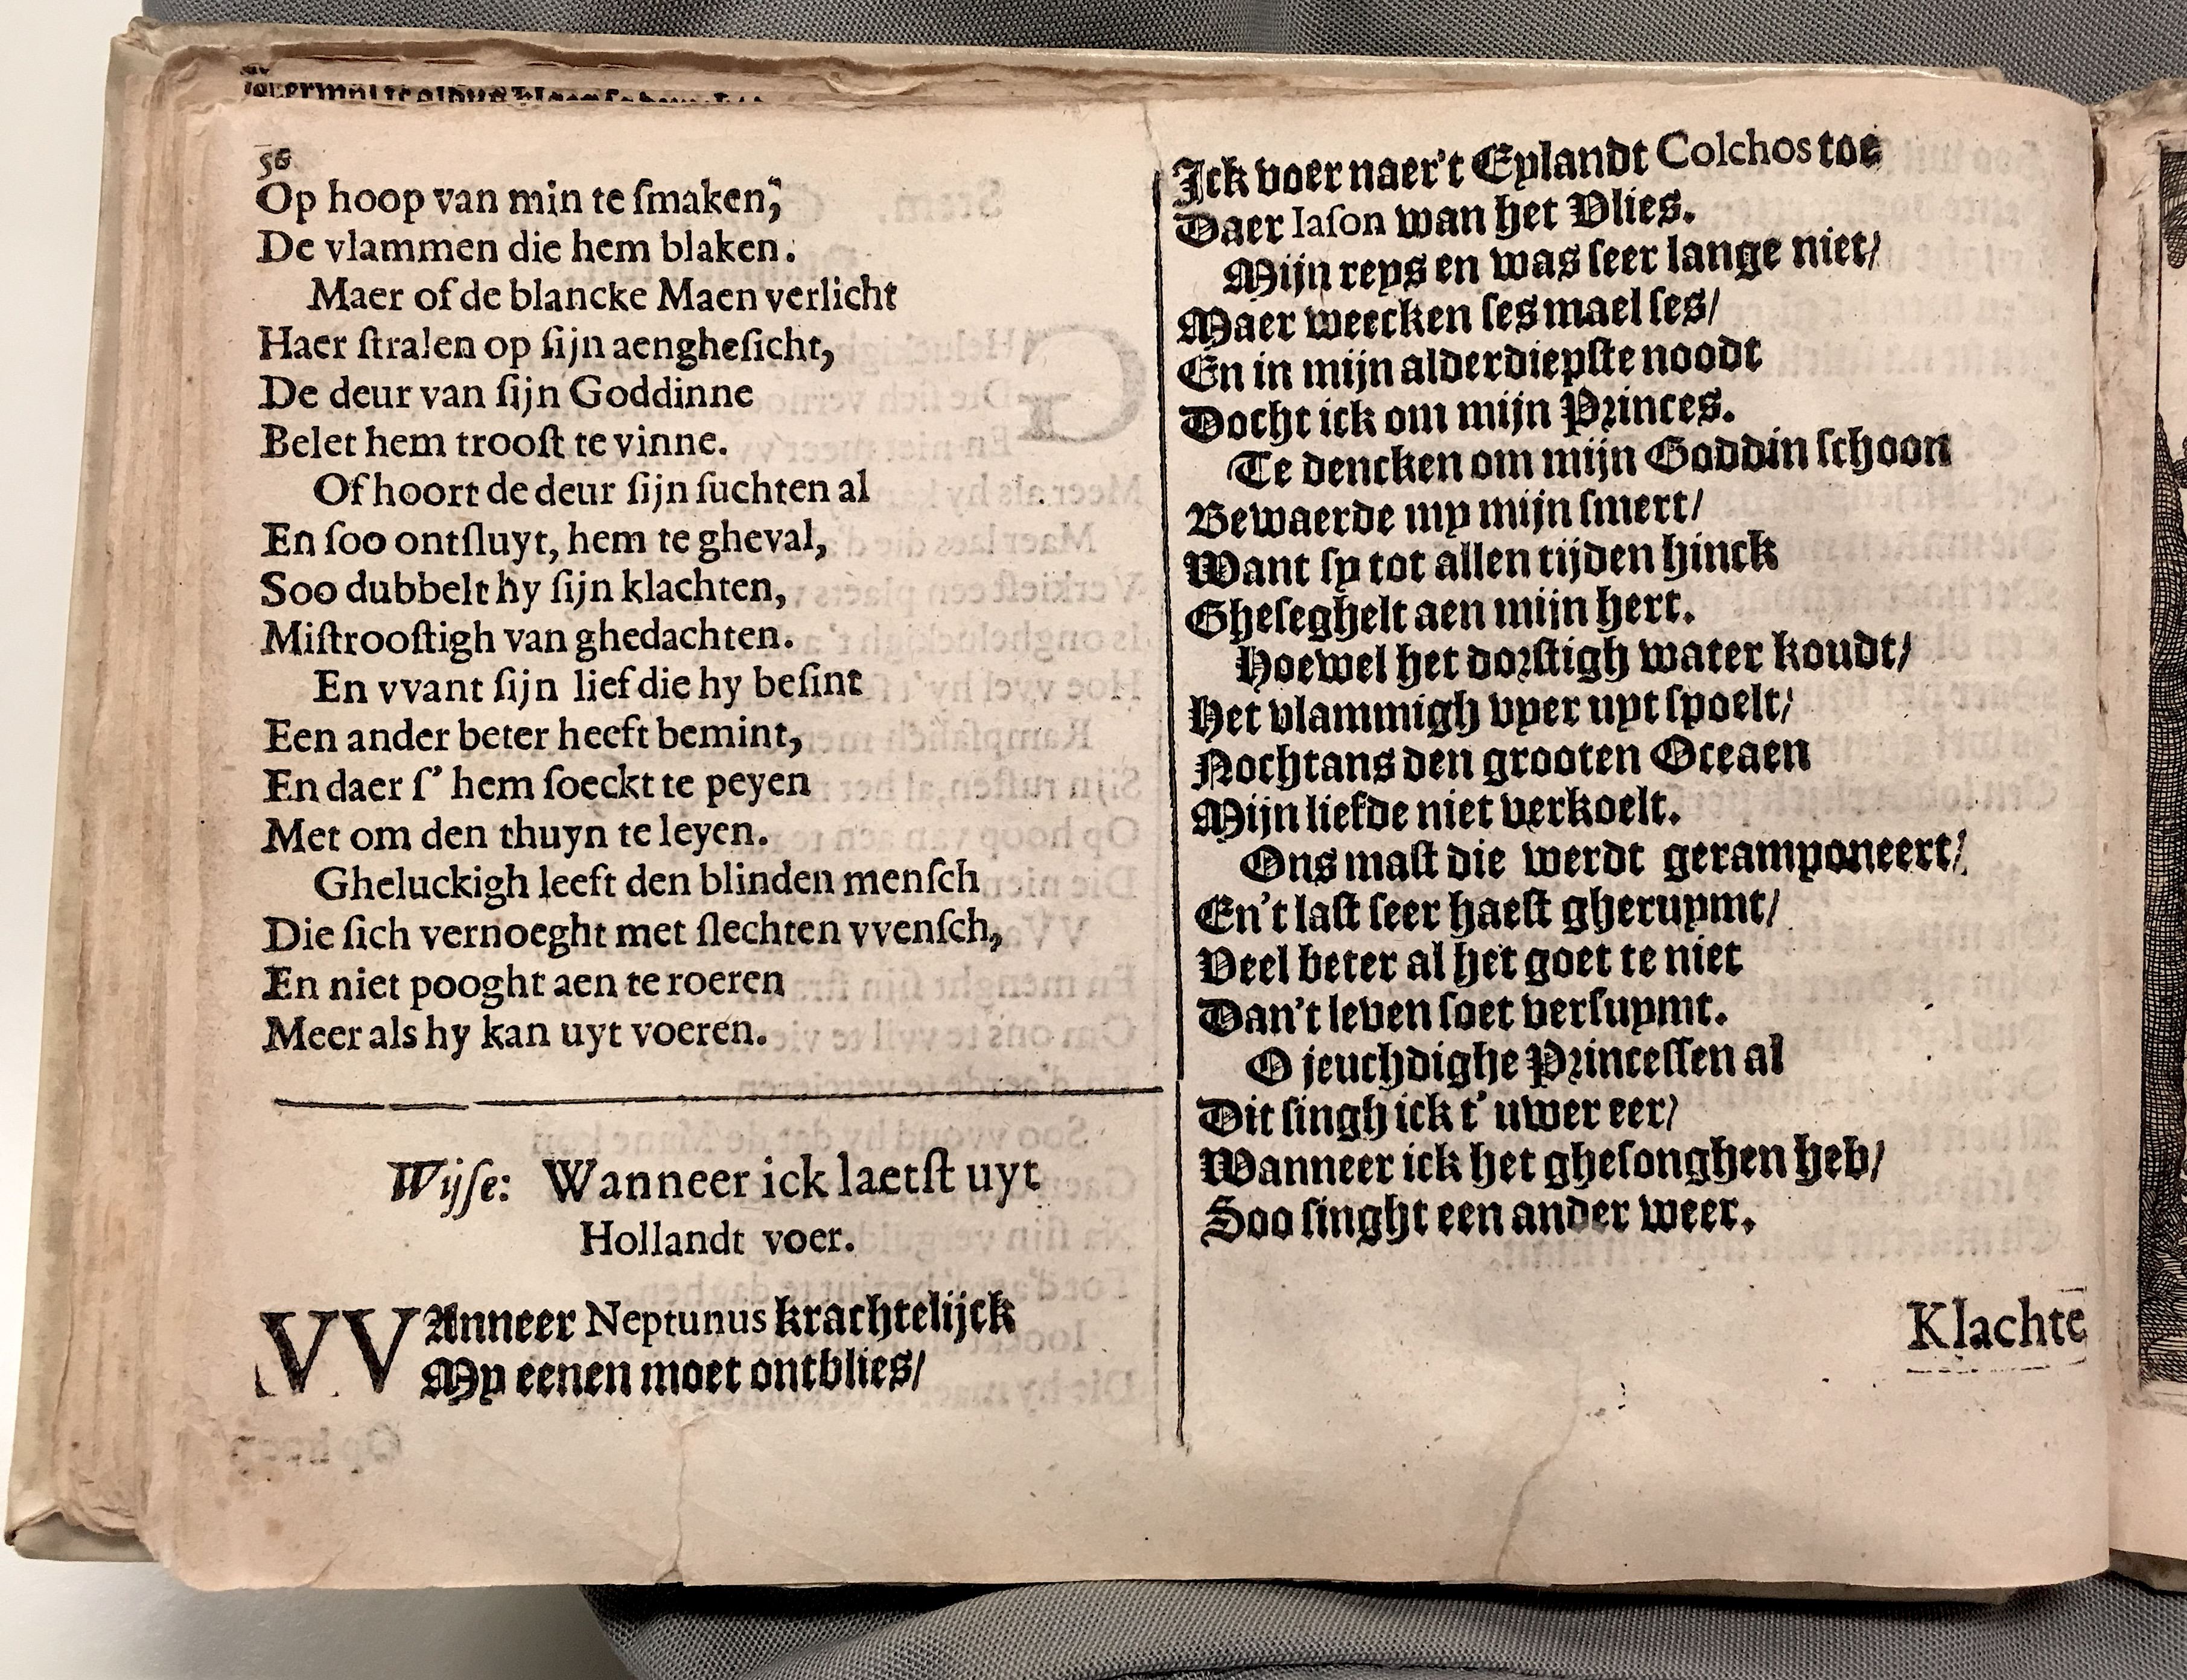 56
Op hoop van min te ſmaken,
De vlammen die hem blaken.
Maer of de blancke Maen verlicht
Haer ſtralen op ſijn aengheſicht,
De deur van ſijn Goddinne
Belet hem trooſt te vinne.
Of hoort de deur ſijn ſuchten al
En ſoo ontſluyt, hem te gheval,
Soo dubbelt hy ſijn klachten,
Miſtrooſtigh van ghedachten.
En vvant ſijn lief die hy beſint
Een ander beter heeft bemint,
En daer ſ' hem ſoeckt te peyen
Met om den thuyn te leyen.
Gheluckigh leeft den blinden menſch
Die ſich vernoeght met ſlechten vvenſch,
En niet pooght aen te roeren
Meer als hy kan uyt voeren.
Wijſe: Wanneer ick laetſt uyt
Hollandt voer.
VVAnneer Neptunus krachtelijck
My eenen moet ontblies/
Ick voer naer't Eylandt Colchos toe
Daer Iaſon wan het Vlies.
Mijn reys en was ſeer lange niet/
Maer weecken ſes mael ſes/
En in mijn alderdiepſte noodt
Docht ick om mijn Princes.
Te dencken om mijn Goddin ſchoon
Bewaerde my mijn ſmert/
Want ſy tot allen tijden hinck
Gheſeghelt aen mijn hert.
Hoewel het dorſtigh water koudt/
Het vlammigh vyer uyt ſpoelt/
Nochtans den grooten Oceaen
Mijn liefde niet verkoelt.
Ons maſt die werdt geramponeert/
En't laſt ſeer haeſt gheruymt/
Veel beter al het goet te niet
Dan't leven ſoet verſuymt.
O jeuchdighe Princeſſen al
Dit ſingh ick t' uwer eer/
Wanneer ick het gheſonghen heb/
Soo ſinght een ander weer.
Klachte